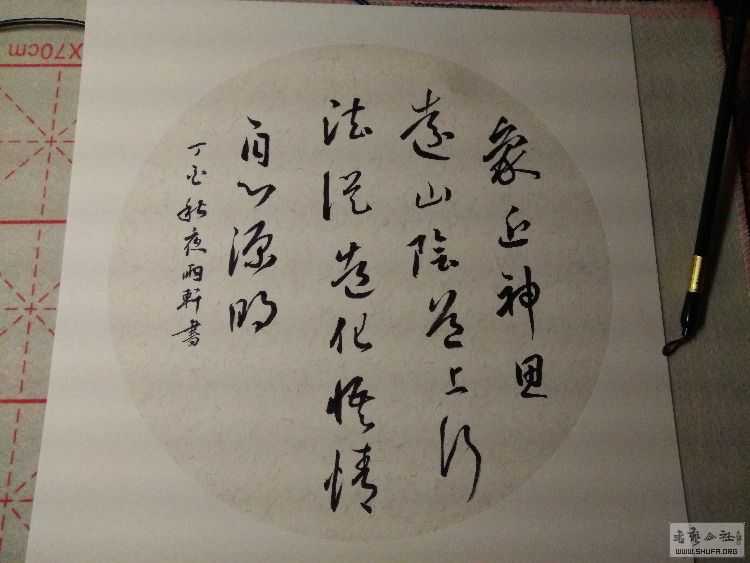 象近神思
遠山陰道上行
法從造化悟情
自心源明
丁酉秋夜雨軒書
X70cm
書藝公社
WWW.SHUFA.ORG